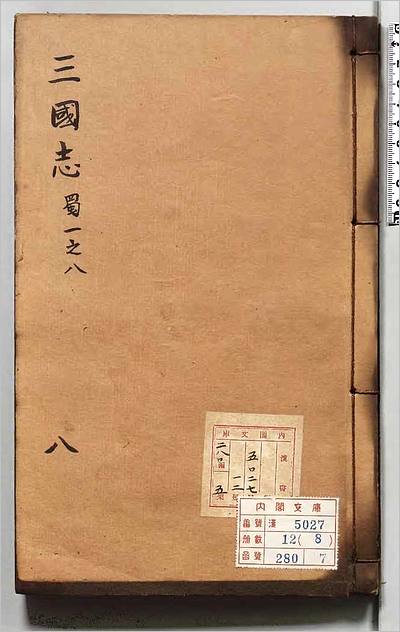 三國志 蜀 一之八
八
內閣文庫
漢書
五〇二七
一二
二八〇
五
內閣文庫
番號 漢 5027
冊數 12( 8 )
函號 280 7